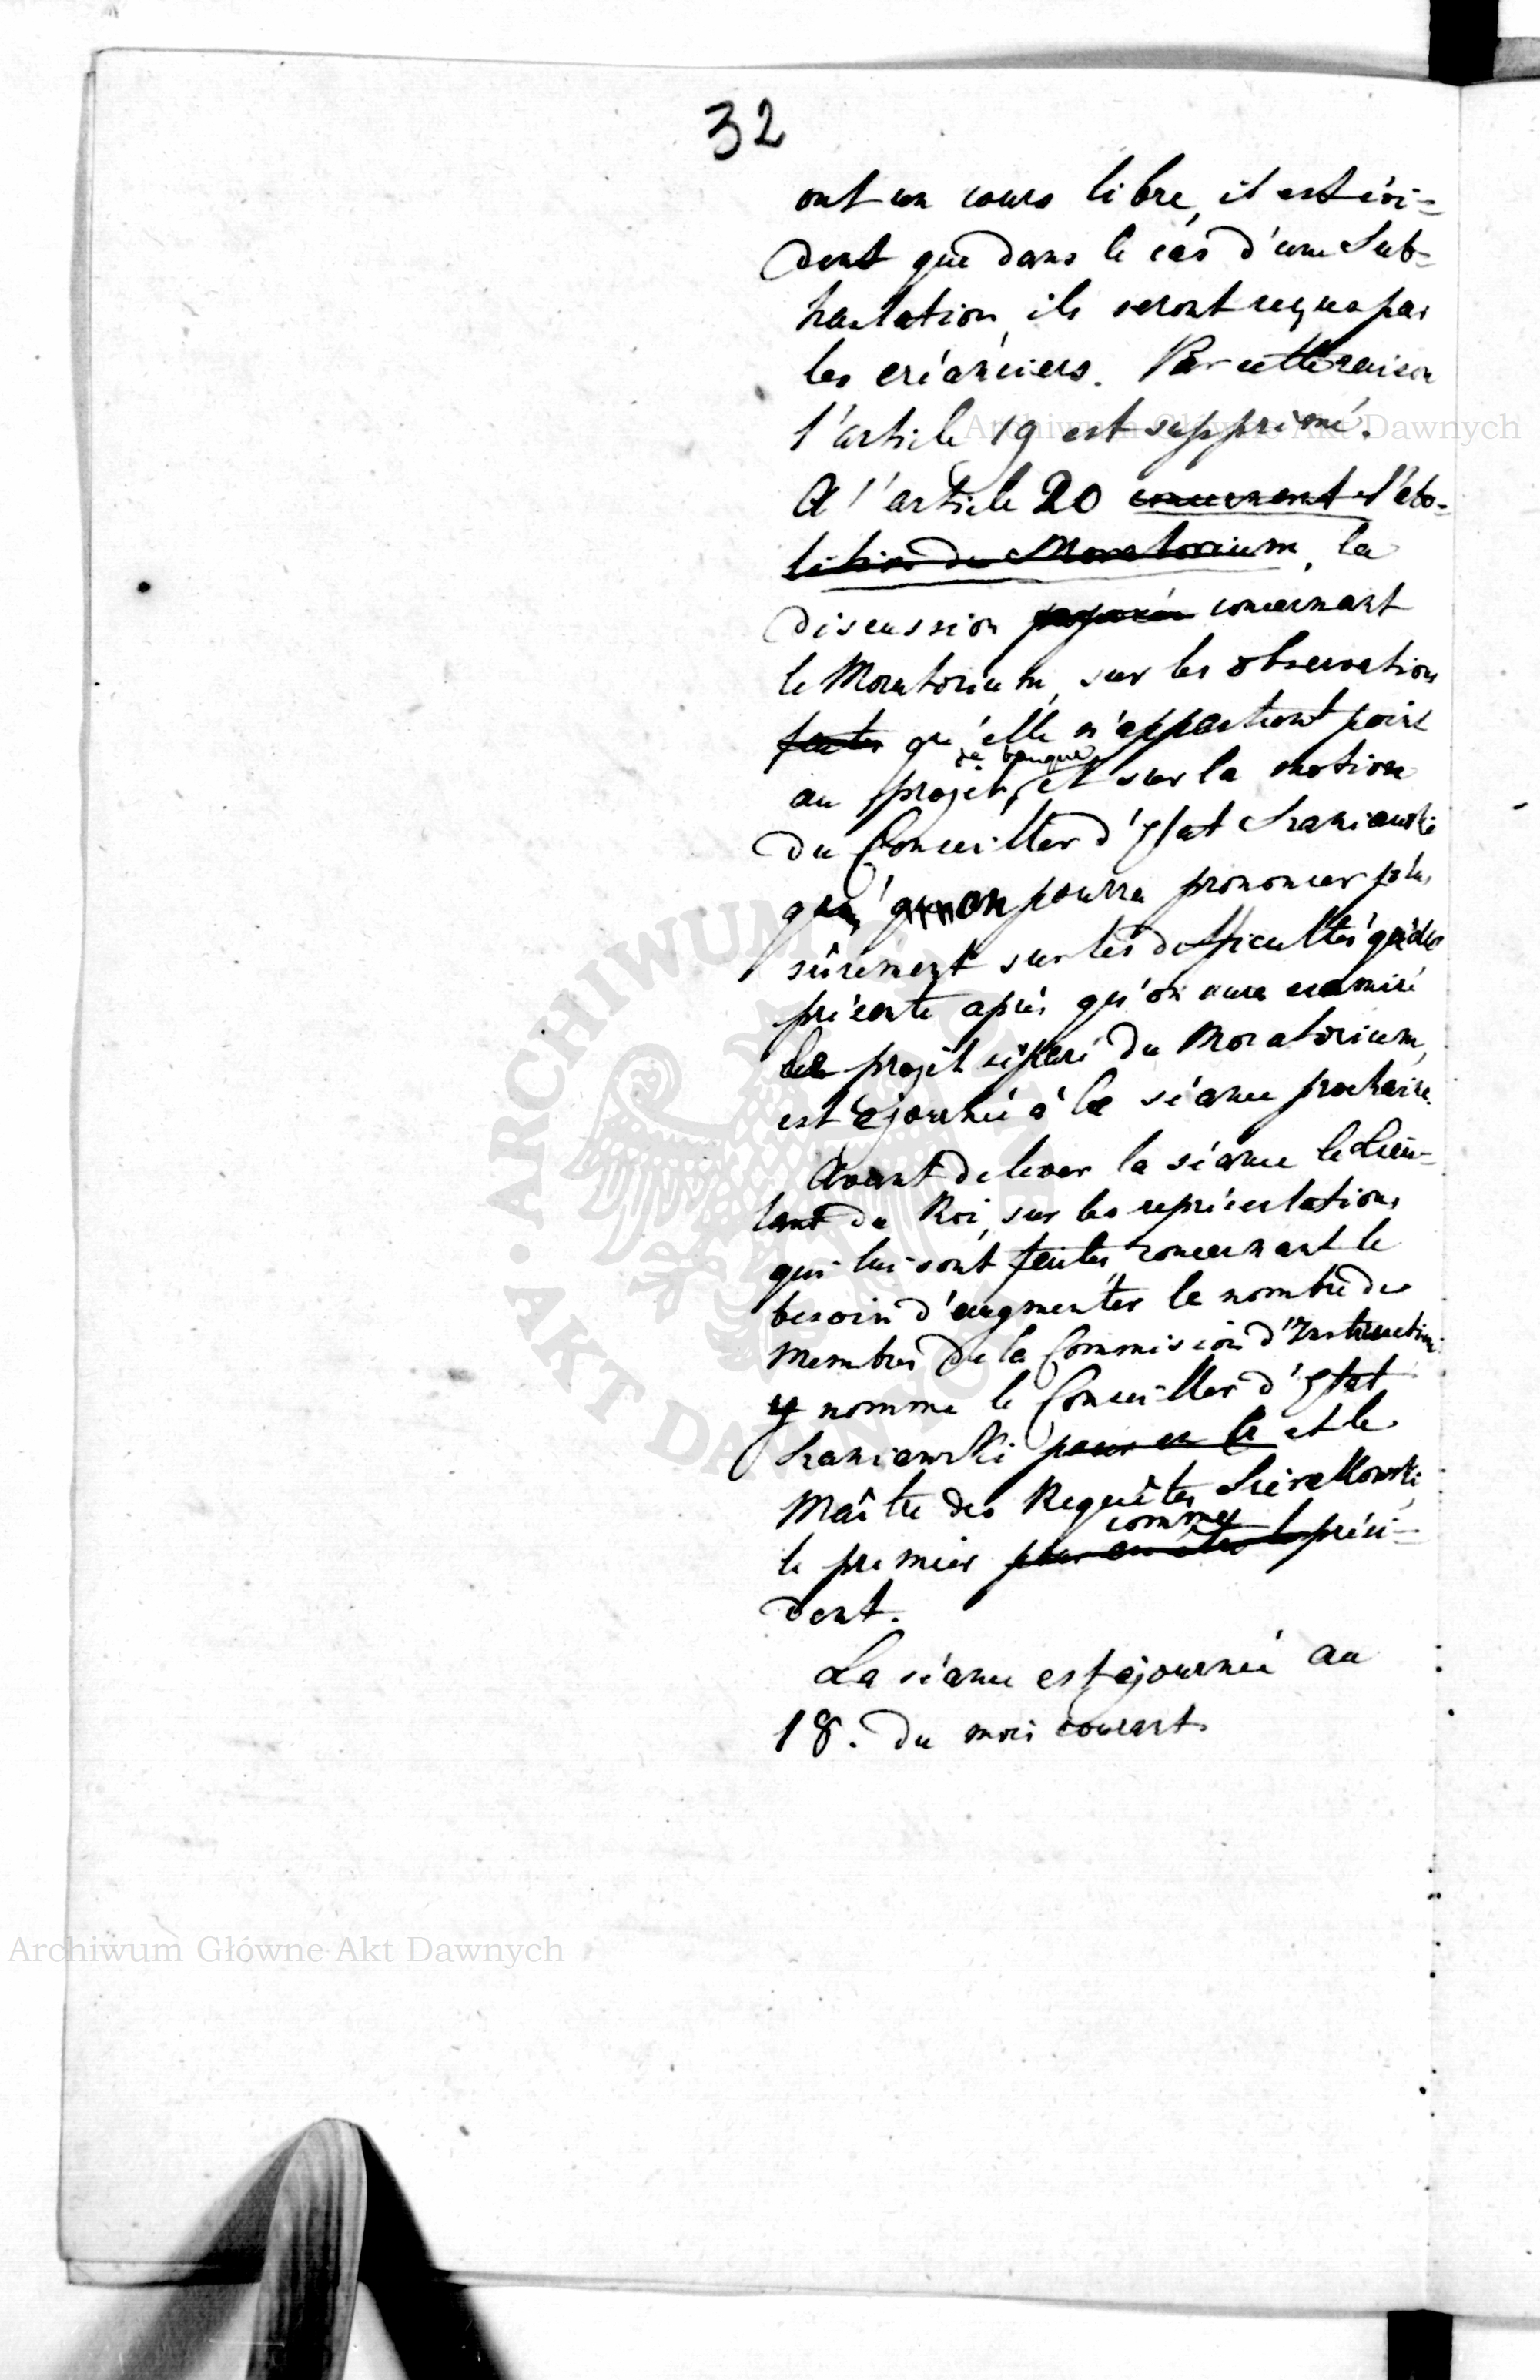 32
ont un cours libre, il est évi=
dent que dans le cas d'une Sub=
hastation, ils seront reçus par
les créanciers. Par cette raison
l'article 19 est supprimé.
A l'article 20 concernant l'abo-
lition du Moratorium, la
discussion concernant
le Moratorium, sur les observations
faites qu'elle n'appartient point
de banque
au projet, et sur la motion
du Conseiller d'Etat Szaniawski
qu'on pourra prononcer plus
sûrement sur les difficultés qu'elle
présente après qu'on aura examiné
le projet séparé du Moratorium,
est ajournée à la séance prochaine.
Avant de lever la séance le Lieu-
tent du Roi, sur les représentations
qui lui sont faites concernant le
besoin d'augmenter le nombre des
Membres de la Commission d'Instruction
y nomme le Conseiller d'Etat
Szaniawski pour en le et le
Maître des Requêtes Sierakowski,
comme
le premier pour en être le prési-
dent.
La séance est ajournée au
18. du mois courant.
Archiwum Główne Akt Dawnych
Archiwum Główne Akt Dawnych
ARCHIWUM GŁÓWNE AKT DAWNYCH